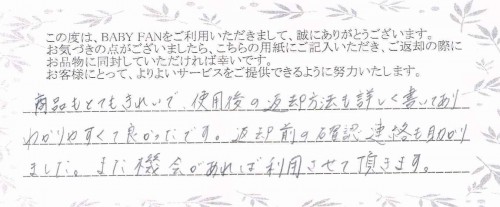 この度は、BABY FANをご利用いただきまして、誠にありがとうございます。
お気づきの点がございましたら、こちらの用紙にご記入いただき、ご返却の際に
お品物に同封していただければ幸いです。
お客様にとって、よりよいサービスをご提供できるように努力いたします。
商品もとてもきれいで、使用後の返却方法も詳しく書いてあり
わかりやすくて良かったです。返却前の確認連絡も助かり
ました。また機会があれば利用させて頂きます。